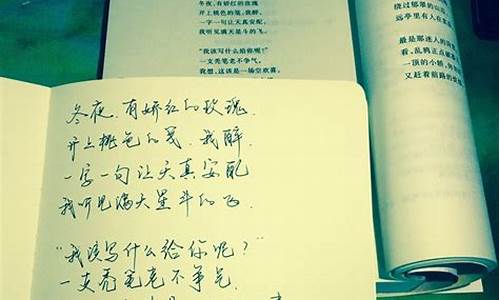 冬夜，有娇红的玫瑰
开上桃色的笺，我醉，
一字一句让天真安配，
我听见满天星斗的飞。
“我该写什么给你呢？”
一支秃笔老不争气。
我想，这该是一场空欢喜，
绕过郁翠的山
远亭里有人在
最是那迷人的
看，乱鸦正点破
一顶的小轿，
又赶着前路的
冬夜，有娇红的玫瑰，
开上桃色的笺，我醉，
一字一句让天真安配
我听见满天星斗的飞.
“我该写什么给你呢？”
一支秃笔老不争气.